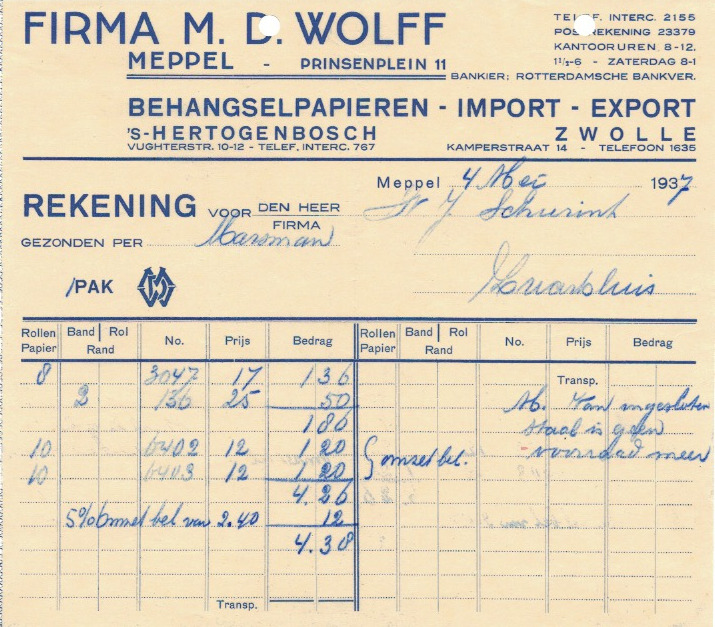 FIRMA M. D. WOLFF
MEPPEL - PRINSENPLEIN 11
TELEF. INTERC. 2155
POSTREKENING 23379
KANTOORUREN 8-12,
1½-6 - ZATERDAG 8-1
BANKIER; ROTTERDAMSCHE BANKVER.
BEHANGSELPAPIEREN - IMPORT - EXPORT
'S-HERTOGENBOSCH ZWOLLE
VUGHTERSTR. 10-12 - TELEF. INTERC. 767 KAMPERSTRAAT 14 - TELEFOON 1635
Meppel 4 Mei 1937
REKENING VOOR DEN HEER
FIRMA
J. Schurink
GEZONDEN PER Massman
/PAK
Zwartsluis
Rollen Papier Band Rol Rand No. Prijs Bedrag Rollen Papier Band Rol Rand No. Prijs Bedrag
8 3047 17 1 36
Transp.
2 136 25 50
1 86
10 6402 12 1 20
10 6403 12 1 20
} omset bel.
4.26
5% Omset bel van 2.40 12
4.38
Transp.
Van ingesloten
staal is geen
voorraad meer